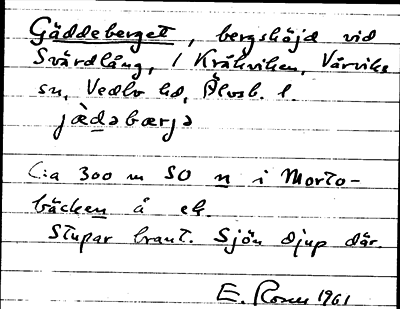 Gäddeberget, bergshöjd vid
Svärdlång, / Kråkviken, Vårviks
sn, Vedbo hd, Älvsb. l.
jæ̀dabærjə
C:a 300 m SO n i Morto-
bäcken å ek.
Stupar brant. Sjön djup där.
E. Rosen 1961